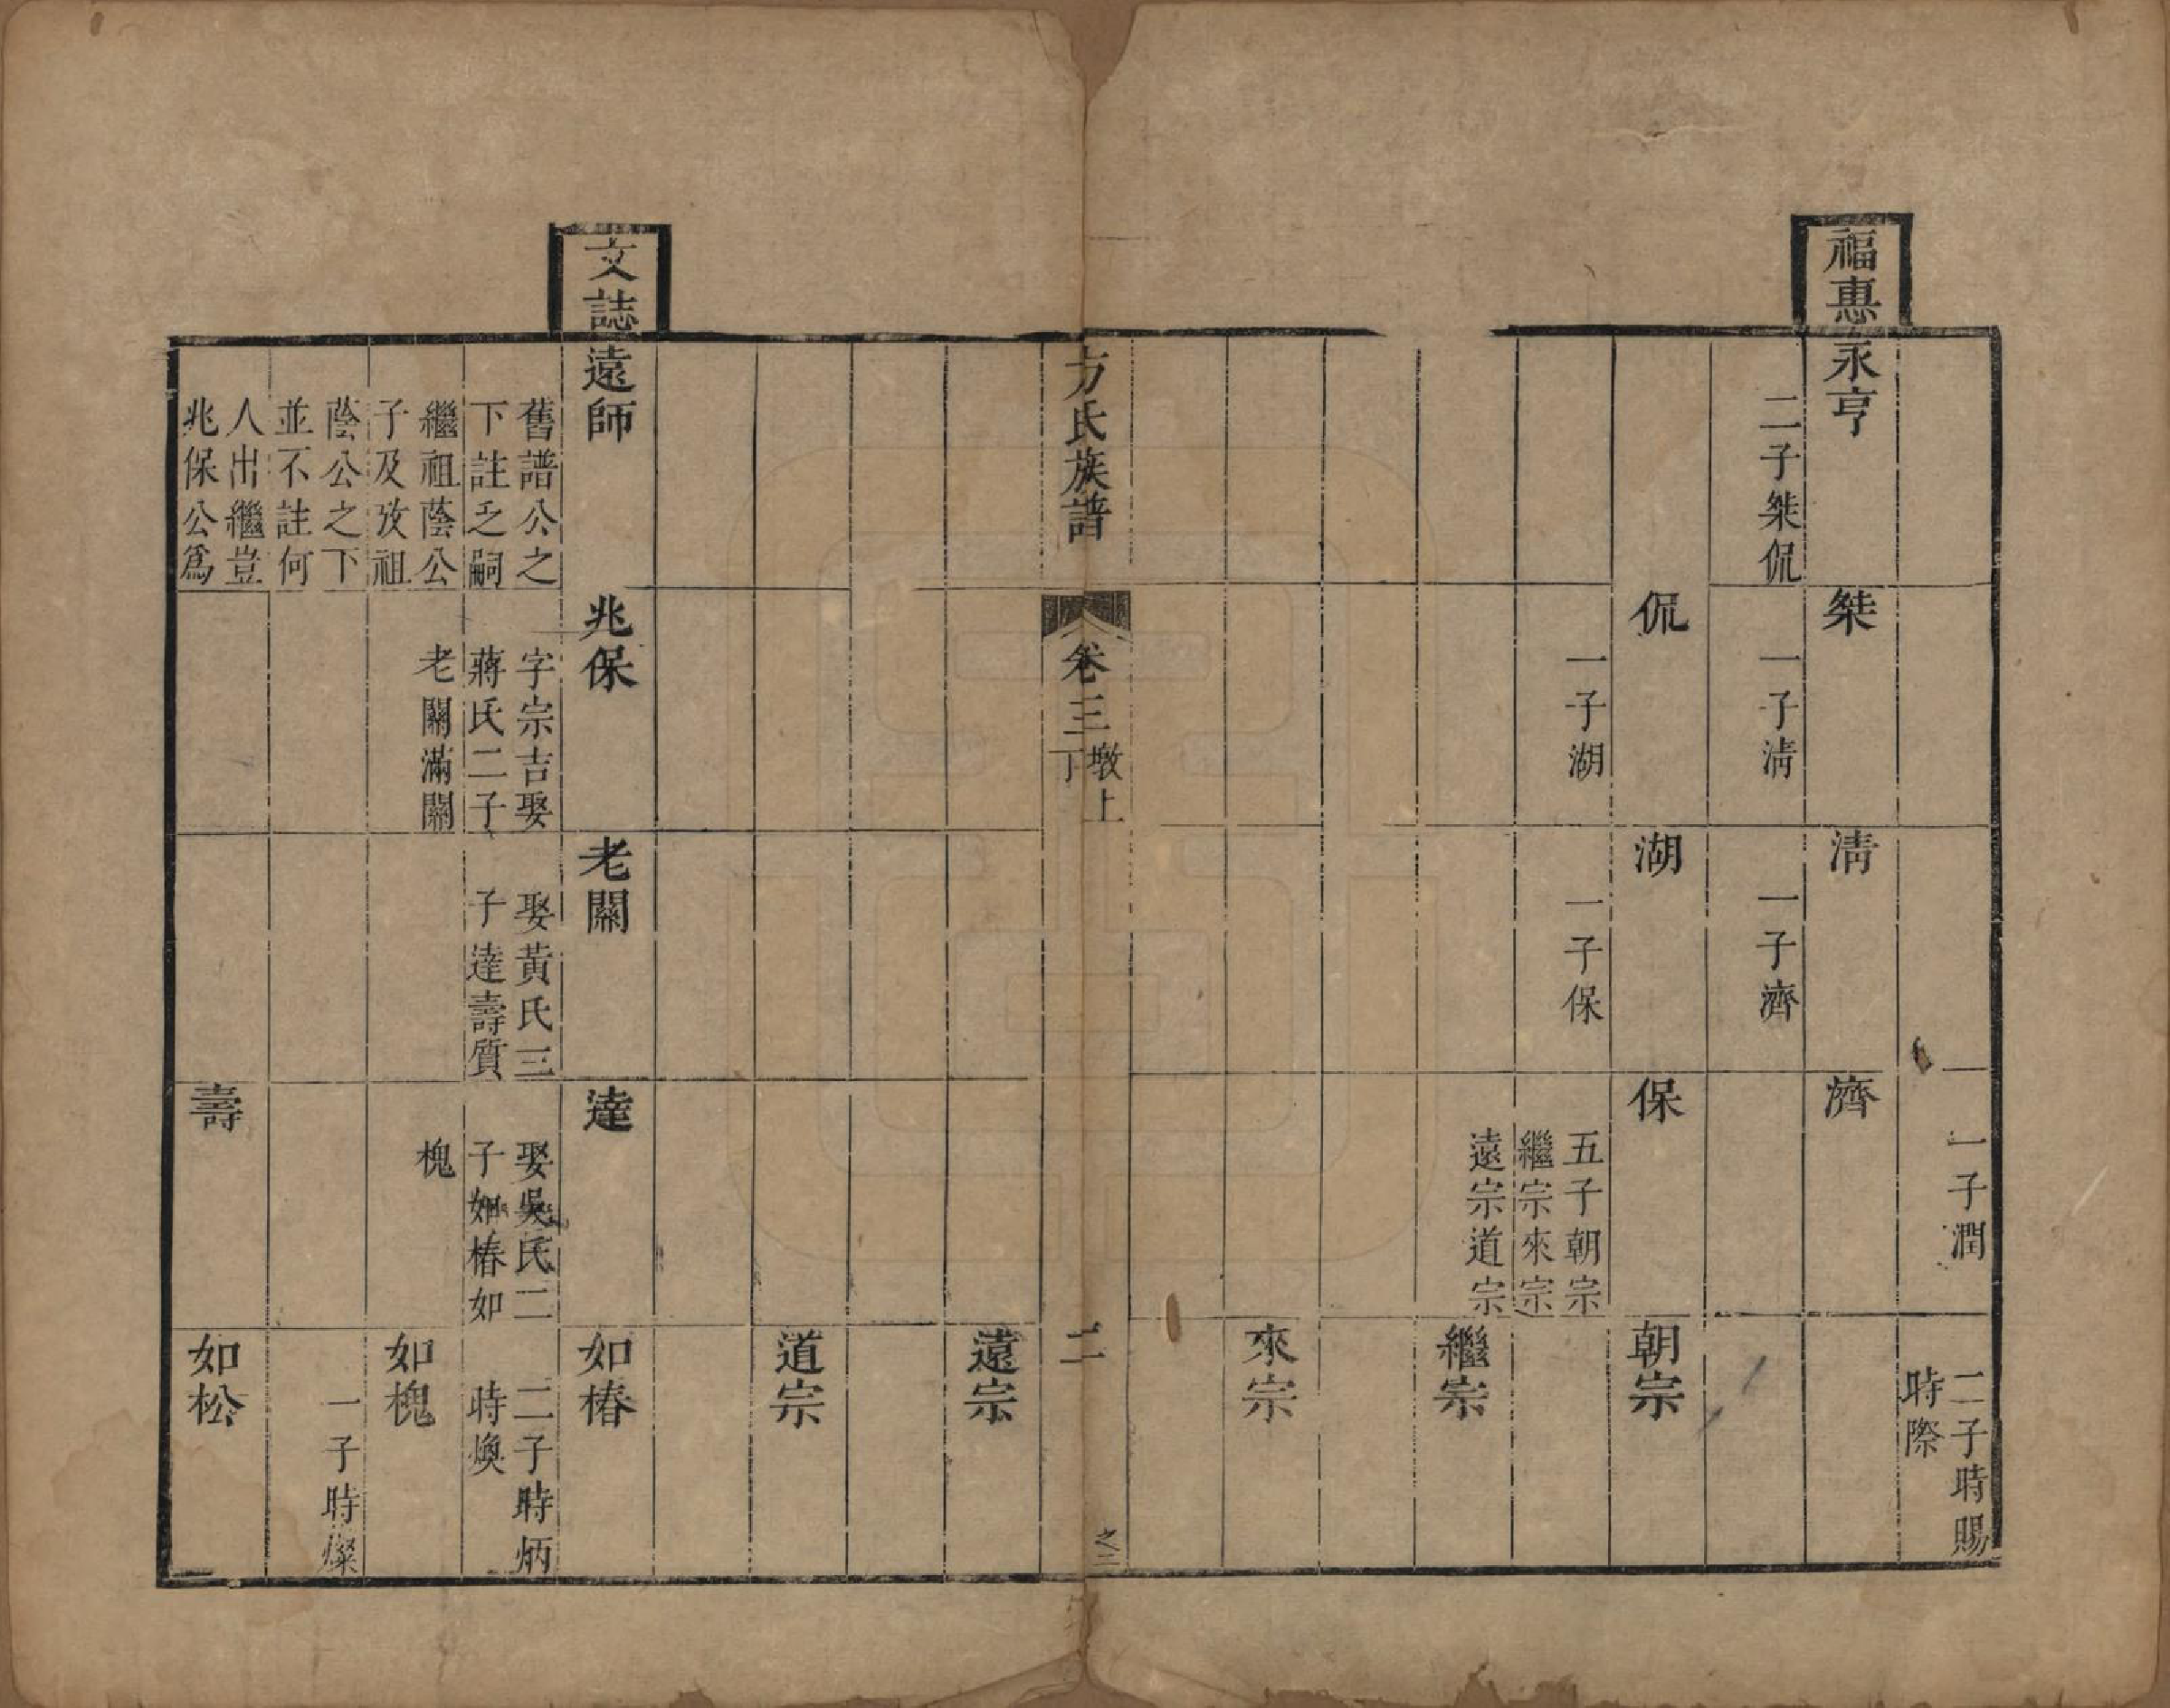 一子潤
二子時賜
時際
福惠
永亨
二子桀侃
桀
一子淸
淸
一子濟
濟
侃
一子湖
湖
一子保
保
五子朝宗
繼宗來宗
遠宗道宗
朝宗
繼宗
來宗
方氏族譜
卷三
墩上
丁
二
之二
遠宗
道宗
文誌
遠師
舊譜公之
下註乏嗣
繼祖蔭公
子及攷祖
蔭公之下
並不註何
人出繼豈
兆保公爲
兆保
字宗吉娶
蔣氏二子
老關滿關
老關
娶黃氏三
子達壽質
達
娶吳氏二
子如椿如
槐
如椿
二子時炳
時煥
如槐
一子時燦
壽
如松